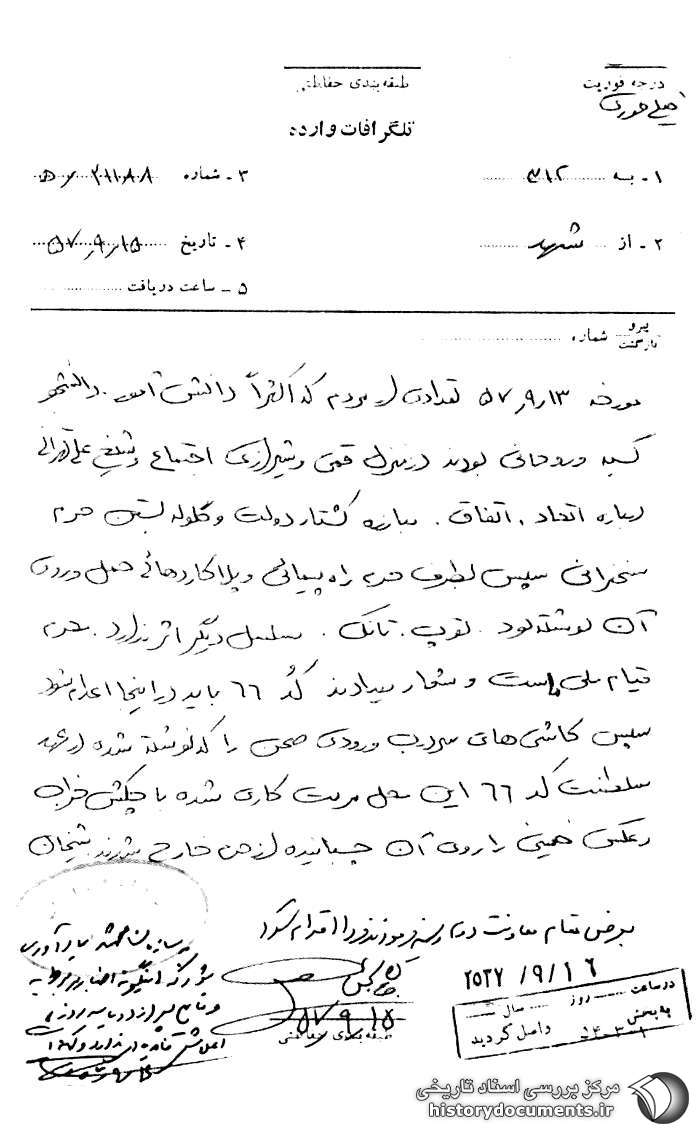 درجه فوریت
خیلی فوری
طبقه‌بندی حفاظتی
تلگرافات وارده
۱ - به ۳۱۲
۳ - شماره
۲ - از مشهد
۴ - تاریخ ۵۷٫۹٫۱۵
۵ - ساعت دریافت
پیرو
بازگشت
شماره
مورخه ۵۷٫۹٫۱۳ تعدادی از مردم که اکثراً دانش‌آموز . دانشجو
کسبه و روحانی بودند در منزل قمی و شیرازی اجتماع و شیخ علی تهرانی
درباره اتحاد . اتفاق . مبارزه کشتار دولت و گلوله بستن حرم
سخنرانی سپس بطرف حرم راه پیمائی و پلاکاردهائی حمل و روی
آن نوشته بود . توپ . تانک . مسلسل دیگر اثر ندارد .
قیام ملی است و شعار میدادند کد ۶۶ باید در اینجا اعدام شود
سپس کاشی‌های سردرب ورودی صحن را که نوشته شده در عهد
سلطنت کد ۶۶ این محل مرمت کاری شده با چکش خراب
و عکس خمینی را روی آن چسبانیده از صحن خارج شدند
بعرض مقام معاونت دوم رسید فرمودند فورا اقدام شود
۲۵۳۷/۹/۱۶
۵۷٫۹٫۱۵
طبقه‌بندی حفاظتی
در ساعت روز سال
به بخش
واصل گردید
مرکز بررسی اسناد تاریخی
historydocuments.ir